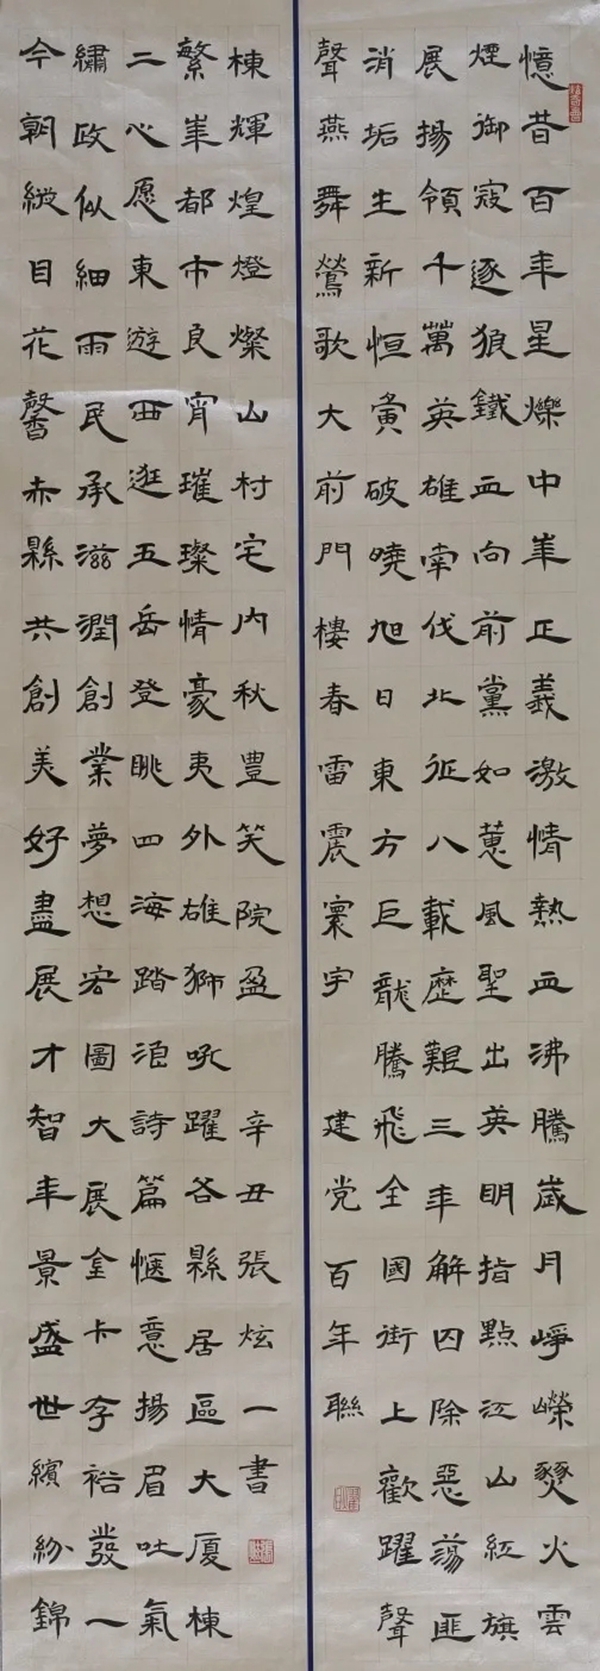 憶昔百年星爍中華正義激情熱血沸騰歲月崢嶸燹火雲
煙御寇逐狼鐵血向前黨如蕙風聖出英明指點江山紅旗
展揚領千萬英雄南伐北征八載歷艱三年解囚除惡蕩匪
消垢生新恒夤破曉旭日東方巨龍騰飛全國街上歡躍聲
聲燕舞鶯歌大前門樓春雷震寰宇
建党百年聯
今朝縱目花馨赤縣共創美好盡展才智年景盛世繽紛錦
繡政似細雨民承滋潤創業夢想宏圖大展金卡裕發一
二心愿東遊西逛五岳登眺四海踏浪詩篇愜意揚眉吐氣
繁華都市良宵璀璨情豪夷外雄獅吼躍各縣居區大廈棟
棟輝煌燈燦山村宅內秋豐笑院盈
辛丑張炫一書